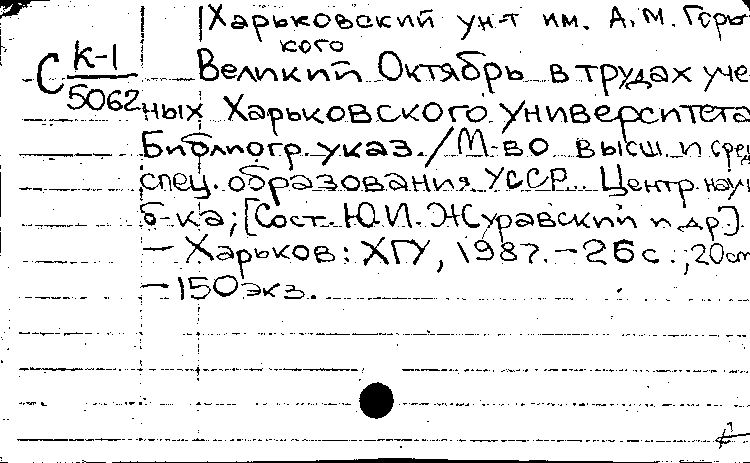 Харьковский ун-т им. А.М. Горь
кого
С К-1
5062
Великий Октябрь в трудах уче
ных Харьковского университета
Библиогр. указ./М-во высш. и сред
спец. образования УССР. Центр. науч
б-ка; [Сост. Ю.И. Журавский и др.]
— Харьков: ХГУ, 1987. — 26 с.; 20 см
— 150 экз.